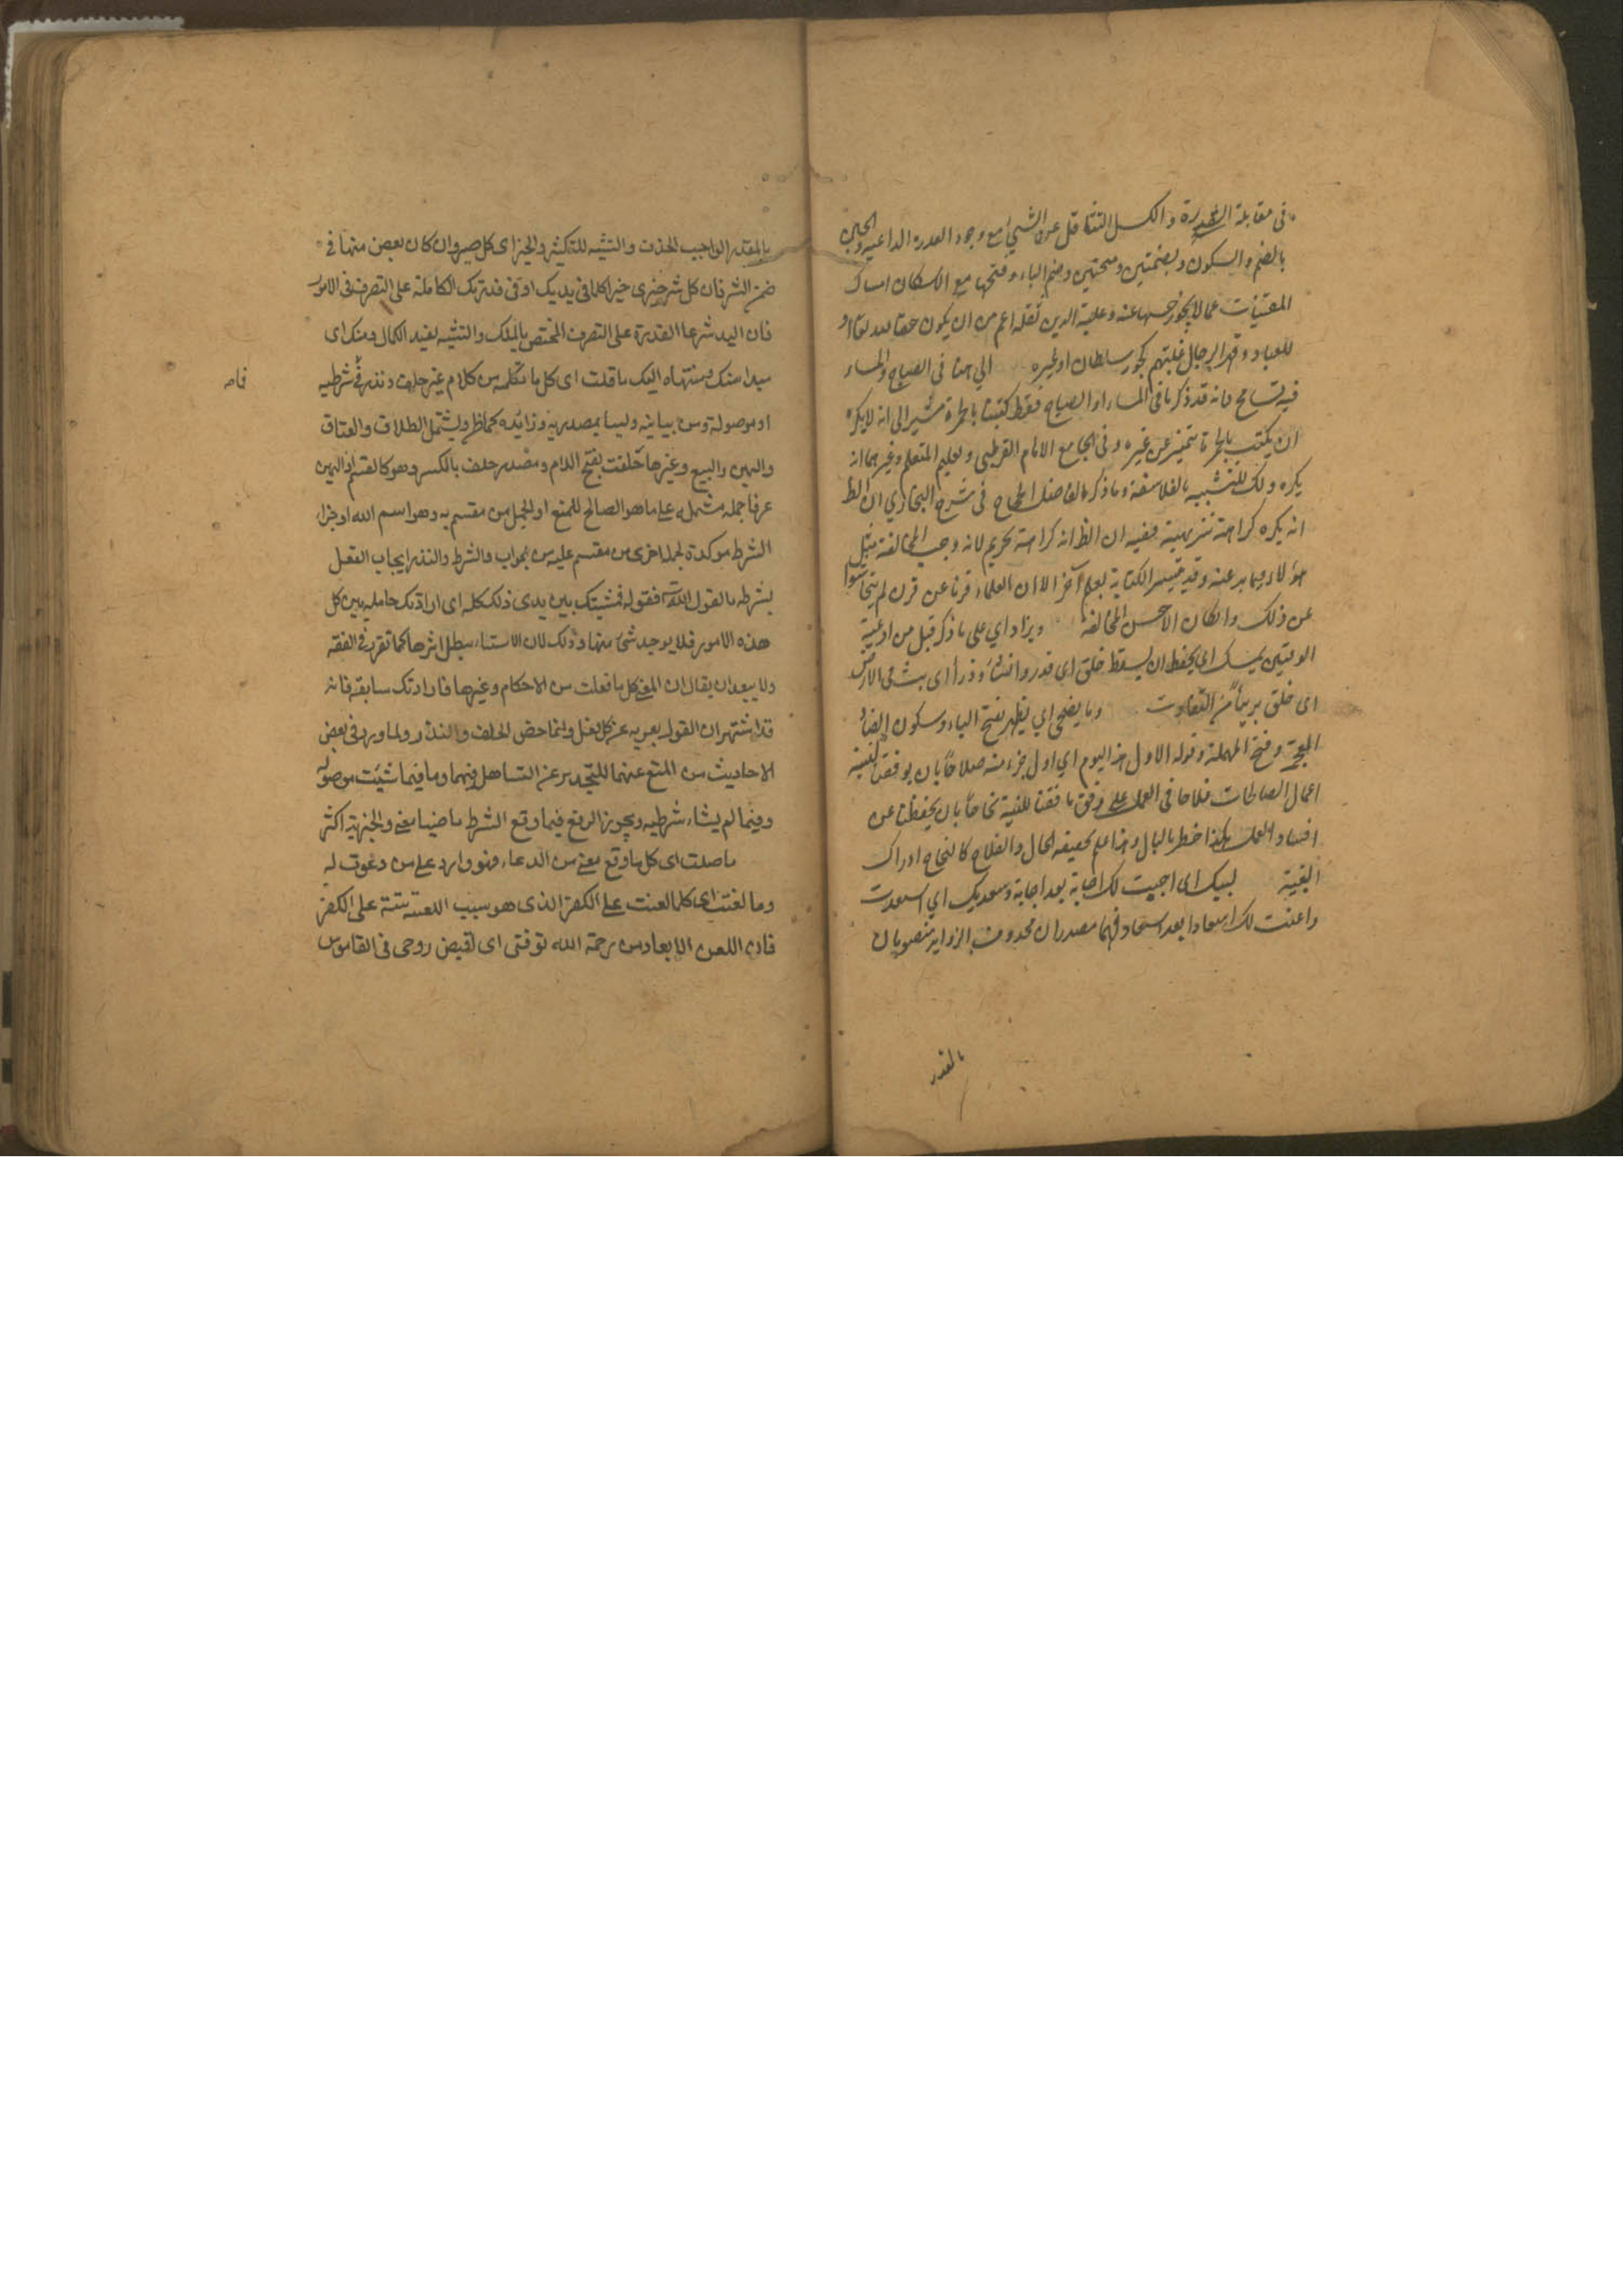 في مقابلة القدرة والكسل التثاقل عن الشيئ مع وجود القدرة الداعية والجبن
بالضم والسكون وبضمتين وضم الباء وفتحها مع الاسكان امساك
المقتنيات عما لا يجوز حبسها عنه وغلبة الدين ثقله اعم من ان يكون حقا لله تعا او
للعباد وقهر الرجال غلبتهم بجور سلطان او غيره الي هنا في الصباح والمساء
فيه تسامح فانه قد ذكر ما في المساء او الصباح فقط كتبنا بالحمرة مشيرا الى انه لا يكره
ان يكتب بالحمرة ليتميز عن غيره وفي الجامع الامام القرطبي وتعليم المتعلم وغيرهما انه
يكره ذلك للتشبيه بالفلاسفة وما ذكر الفاضل في شرح البخاري ان الظ
انه يكره كراهة تنزيهية ففيه ان الظ انه كراهة تحريم لانه وجب المخالفة بمثل
هؤلاء وقد الكتابة بعلم آخر الا ان العلماء قرنا عن قرن لم يتحاشوا
عن ذلك وانكان الاحسن المخالفة ويزاد اي على ما ذكر قبل من ادعية
الوقتين يمسك اي يحفظ ان يسقط خلق اى قدر وانشأ وذرأ اى بث في الارض
اى خلق بريئا من التفاوت وما يضحي اي يظهر بفتح الياء وسكون الضاد
المعجمة وفتح المهملة وقوله الاول هذا اليوم اي اول جزء منه صلاحا بان يوفقنا لنفسه
اعمال الصالحات فلاحا في العمل على وفق ما نجاحا بان يحفظنا عن
افساد العمل هكذا خطر بالبال واعلم بحقيقة الحال والفلاح كالنجاح ادراك
البغية لبيك اى اجيبت لك اجابة بعد اجابة وسعديك اي اسعدت
واعنت لك اسعادا بعد اسعاد فهما مصدران محذوف الزوايد منصوبان
بالمقدر
بالمقدر الواجب الحذف والتثنيه للتكثير والخير اى كل خير وان كان بعض منها في
ضمن الشر فان كل شر جزى خير اكلها في يديك اى في قدرتك الكاملة على التصرف في الامور
فان اليد شرعا القدرة على التصرف المختص بالملك والتثنيه لفيد الكمال ومنك اى
مبدا منك ومنتهاه اليك ما قلت اى كل ما تكلم من كلام غير حلف ونذر فما شرطيه
او موصولة ومن بيانيه وليسا بمصدريه وزائده كما ظن ولشمل الطلاق والعتاق
واليمين والبيع وغيرها حلفت بفتح اللام ومصدر حلف بالكسر وهو كالقسم واليمين
عرفا جمله مشتمله على ما هو الصالح للمنع او الحمل من مقسم به وهو اسم الله او جزاء
الشرط موكدة لجملة اخرى من مقسم عليه من جواب والشرط والنذر ايجاب الفعل
بشرطه بالقول فقوله فمشيتك بين يدى ذلك كله اى ارادتك حامله بين كل
هذه الامور فلا يوجد شئ منها وذلك لان الاستثناء يبطل اثرها كما تقرر في الفقه
ولا يبعد ان يقال ان المعنى كل ما فعلت من الاحكام وغيرها فارادتك سابقه فانه
قد اشتهر ان القول يعبر به عن كل فعل وانما خص الحلف والنذر ولما ورد في بعض
الاحاديث من المنع عنهما للتحذير عن التساهل فيهما وما فيما شيئت موصوله
وفيما لم يشاء شرطيه ويجوز الرفع فيما وقع الشرط ماضيا معنى والجزمية اكثر
ما صليت اى كل ما وقع معنى من الدعاء فهو وارد على من دعوت له
وما لعنت اى كلما لعنت على الكفر الذى هو سبب اللعنة على الكفر
فان اللعن الابعاد من رحمة الله توفني اى تقبض روحي في القاموس